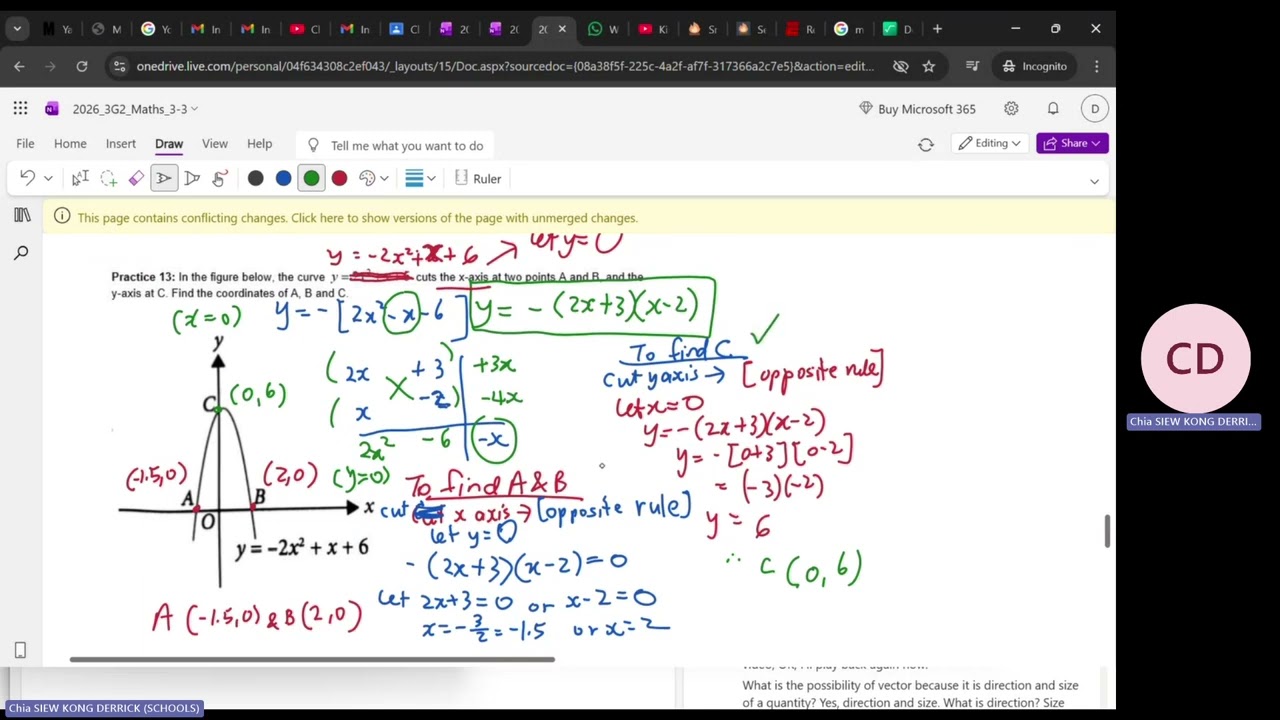 Ya
M
Yo
In
In
Cl
In
Cl
20
20
20
W
Ki
Sr
Se
Re
m
D
onedrive.live.com/personal/04f634308c2ef043/_layouts/15/Doc.aspx?sourcedoc={08a38f5f-225c-4a2f-af7f-317366a2c7e5}&action=edit...
Incognito
2026_3G2_Maths_3-3
Buy Microsoft 365
D
File Home Insert Draw View Help
Tell me what you want to do
Editing
Share
Ruler
This page contains conflicting changes. Click here to show versions of the page with unmerged changes.
y = -2x²+x+6 → let y=0
Practice 13: In the figure below, the curve y = cuts the x-axis at two points A and B, and the
y-axis at C. Find the coordinates of A, B and C.
(x=0)
y = -[2x² -x -6]
y = -(2x+3)(x-2)
y
C (0,6)
(2x +3) +3x
(x -2) -4x
2x² -6 -x
(-1.5,0) (2,0) (y=0)
A B x
O
y = −2x² + x + 6
A (-1.5,0) & B (2,0)
To find A & B
cut x axis → [opposite rule]
let y=0
-(2x+3)(x-2)=0
let 2x+3=0 or x-2=0
x=-3/2=-1.5 or x=2
To find C ✓
cut y axis → [opposite rule]
let x=0
y=-(2x+3)(x-2)
y=-[0+3][0-2]
=(-3)(-2)
y = 6
∴ C (0,6)
What is the possibility of vector because it is direction and size
of a quantity? Yes, direction and size. What is direction? Size
CD
Chia SIEW KONG DERRI...
Chia SIEW KONG DERRICK (SCHOOLS)